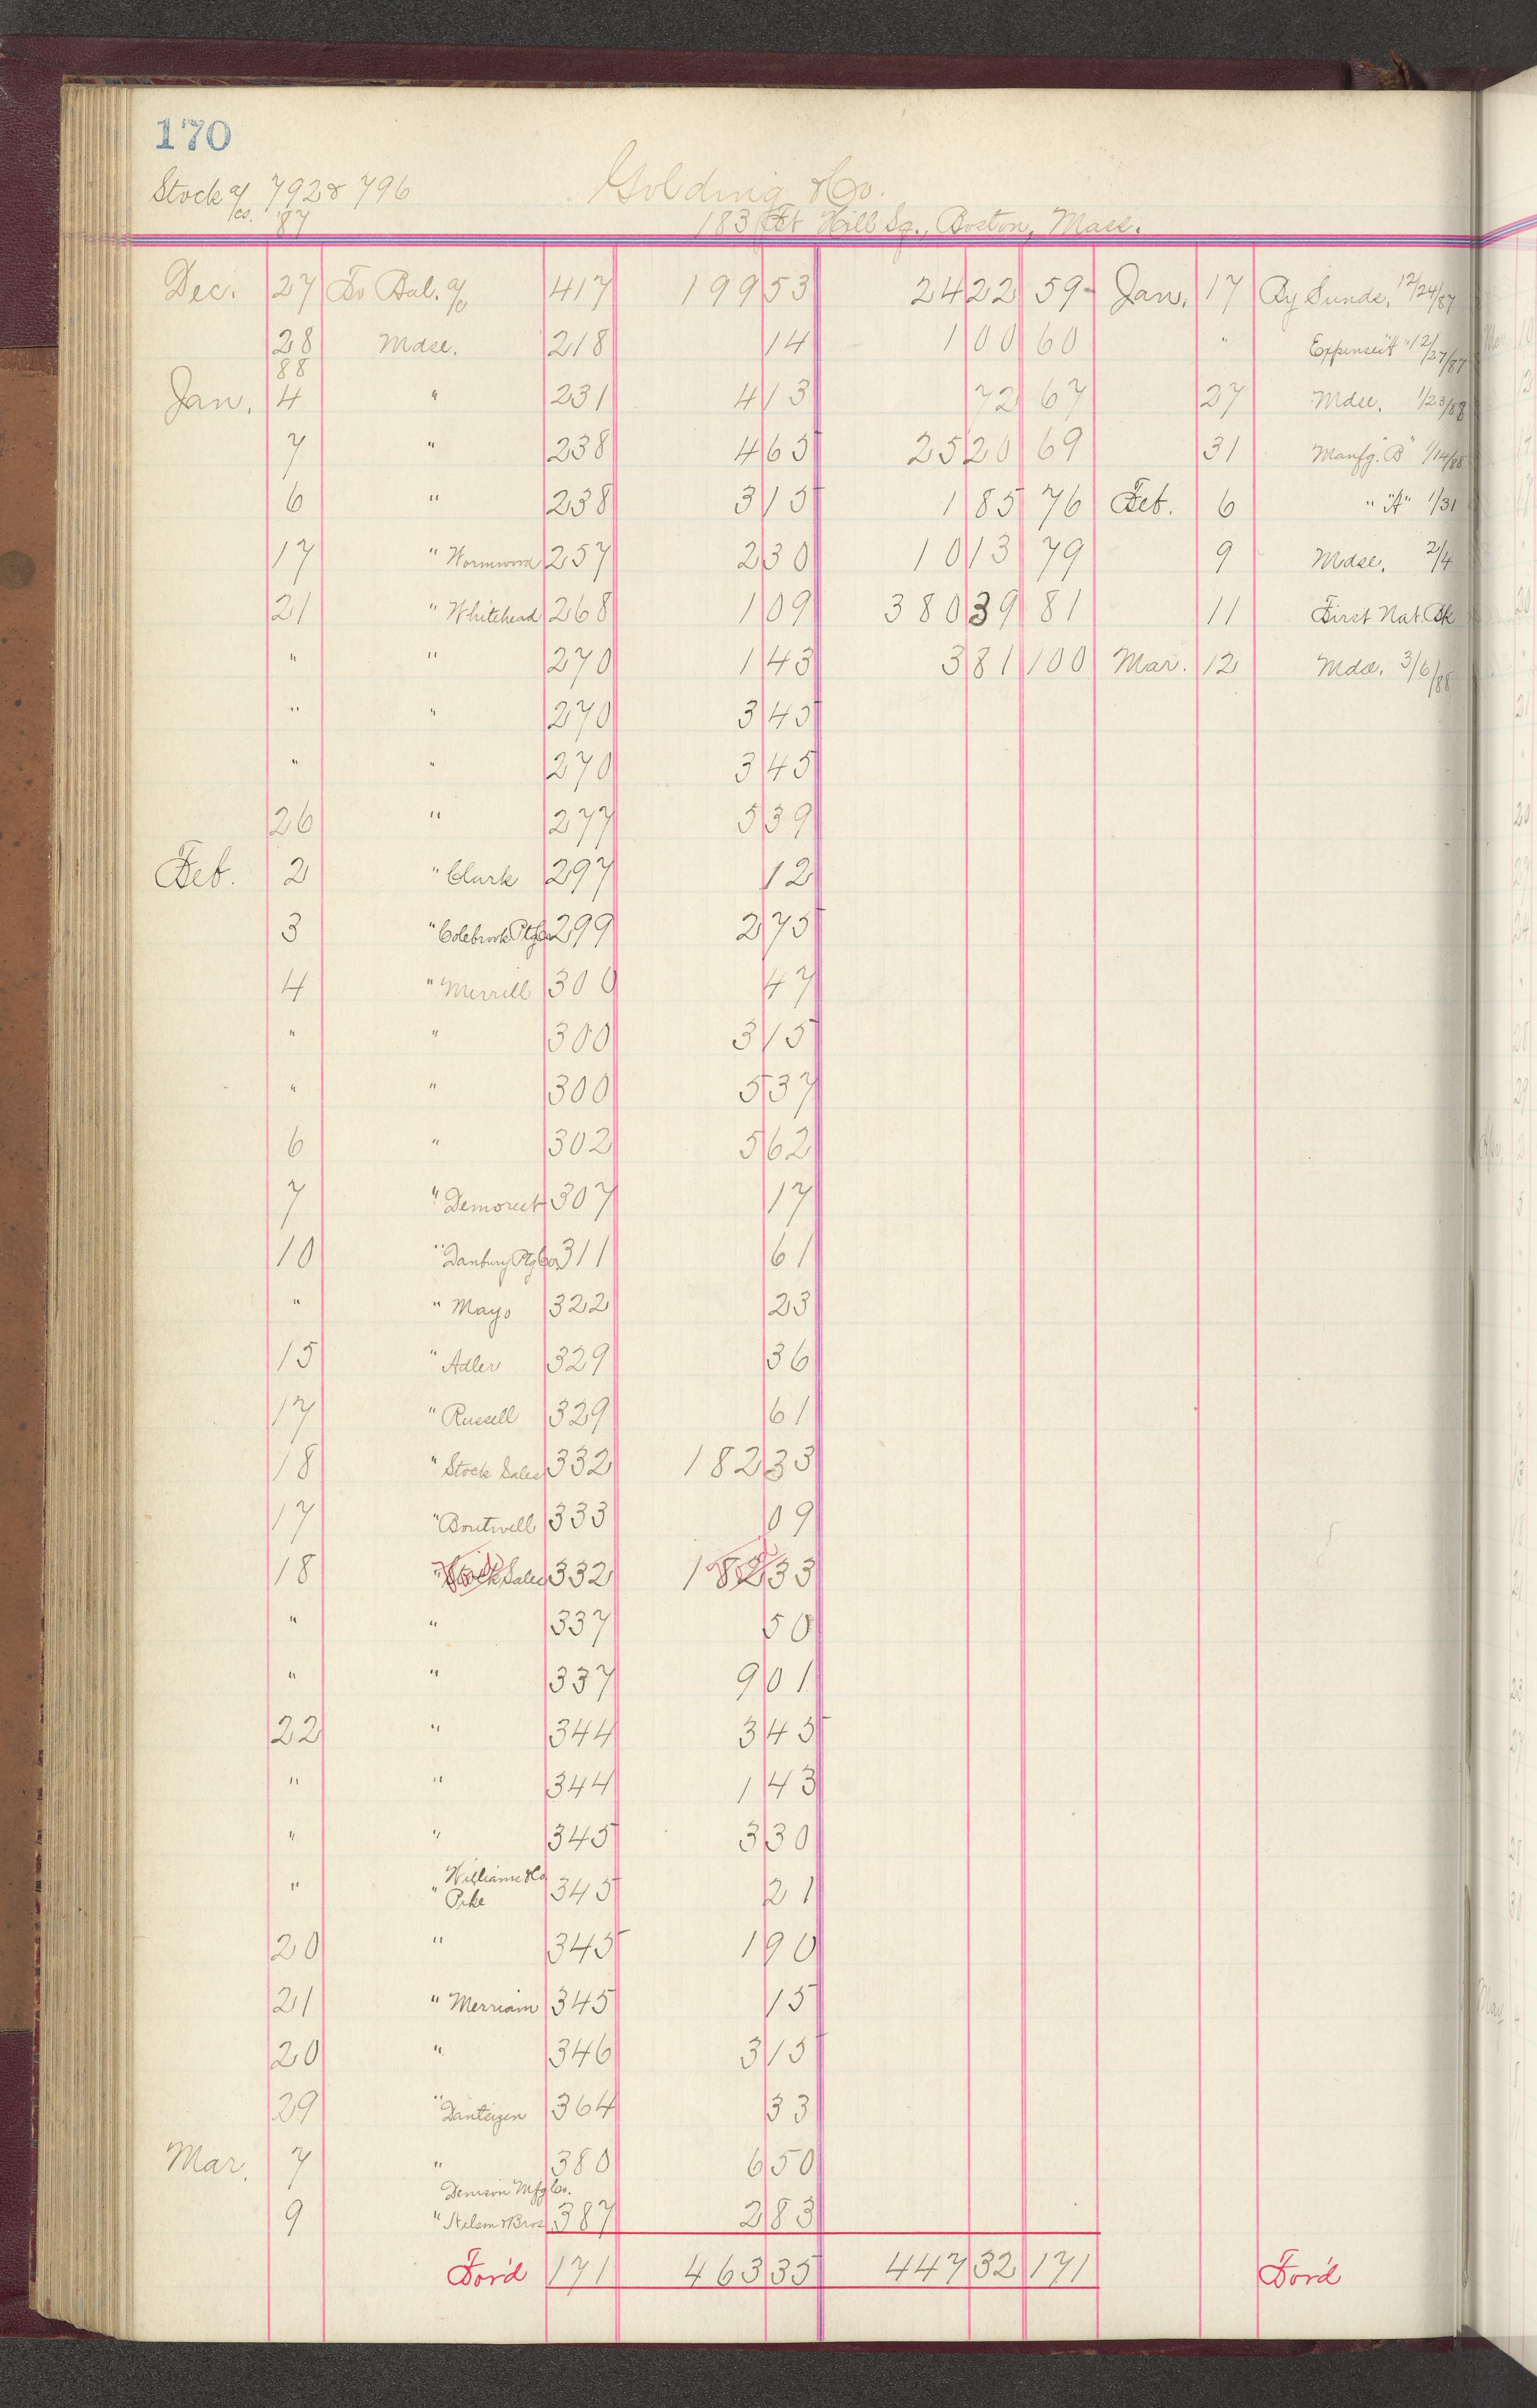 170
Stock a/cs. 792 & 796 Golding & Co.
'87 183 Ft Hill Sq., Boston, Mass.
Dec. 27 To Bal. a/c 417 199 53 24 22 59 Jan. 17 By Sunds. 12/24/87
28 Mdse. 218 14 1 00 60 " 12/27/87
88
Jan. 4 " 231 4 13 72 67 27 Mdse. 1/23/88
7 " 238 4 65 25 20 69 31 Manfg. "B" 1/14/88
6 " 238 3 15 1 85 76 Feb. 6 " "A" 1/31
17 " Wormwood 257 2 30 10 13 79 9 Mdse. 2/4
21 " Whitehead 268 1 09 380 39 81 11 First Nat. Bk
" " 270 1 43 3 81 100 Mar. 12 Mdse. 3/6/88
" " 270 3 45
" " 270 3 45
26 " 277 5 39
Feb. 2 " Clark 297 12
3 " Colebrook Ptg Co 299 2 75
4 " Merrill 300 47
" " 300 3 15
" " 300 5 37
6 " 302 5 62
7 " Demorest 307 17
10 " Danbury Ptg Co 311 61
" " Mayo 322 23
15 " Adler 329 36
17 " Russell 329 61
18 " Stock Sales 332 182 33
17 " Boutwell 333 09
18 " Stock Sales 332 182 33
" " 337 50
" " 337 9 01
22 " 344 3 45
" " 344 1 43
" " 345 3 30
Williams & Co
" " Pike 345 21
20 " 345 1 90
21 " Merriam 345 15
20 " 346 3 15
29 " 364 33
Mar. 7 " 380 6 50
Denison Mfg Co.
9 " Nelson & Bros 387 2 83
For'd 171 463 35 447 32 171 For'd